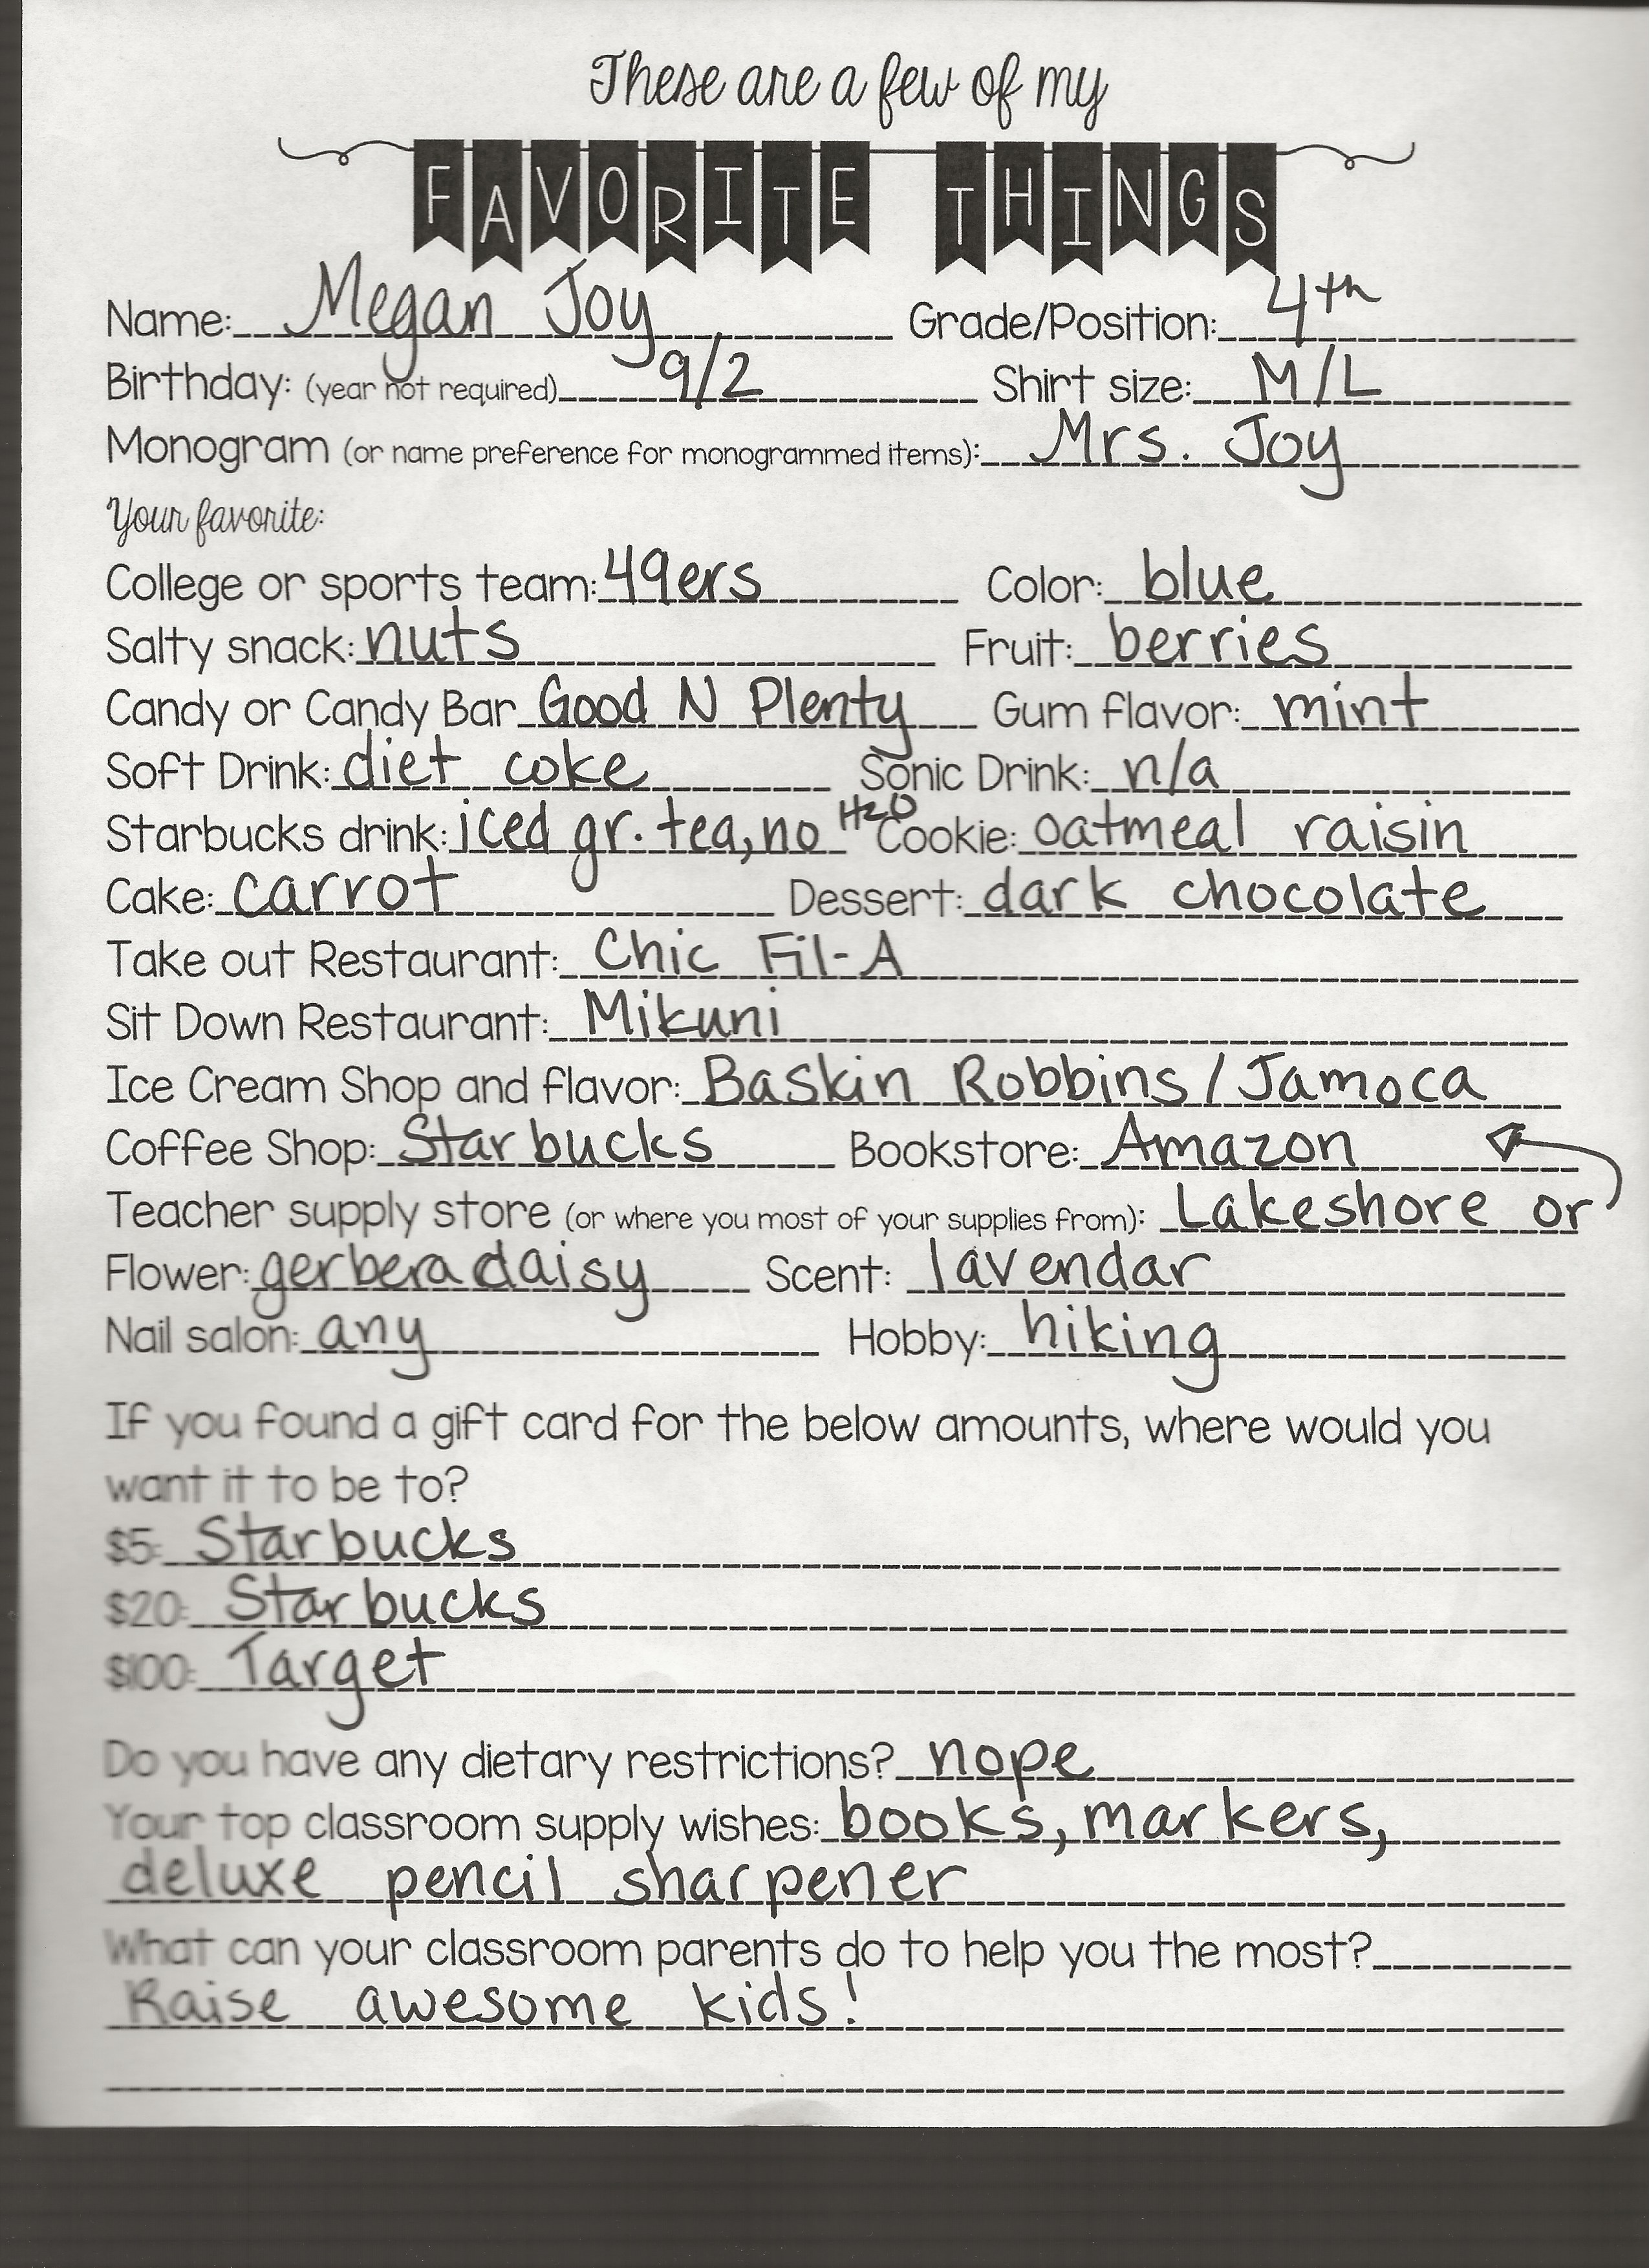 These are a few of my
FAVORITE THINGS
Name: Megan Joy Grade/Position: 4th
Birthday: (year not required) 9/2 Shirt size: M/L
Monogram (or name preference for monogrammed items): Mrs. Joy
Your favorite:
College or sports team: 49ers Color: blue
Salty snack: nuts Fruit: berries
Candy or Candy Bar Good N Plenty Gum flavor: mint
Soft Drink: diet coke Sonic Drink: n/a
Starbucks drink: iced gr. tea, no H2O Cookie: oatmeal raisin
Cake: carrot Dessert: dark chocolate
Take out Restaurant: Chic Fil-A
Sit Down Restaurant: Mikuni
Ice Cream Shop and flavor: Baskin Robbins / Jamoca
Coffee Shop: Starbucks Bookstore: Amazon
Teacher supply store (or where you most of your supplies from): Lakeshore or
Flower: gerbera daisy Scent: lavendar
Nail salon: any Hobby: hiking
If you found a gift card for the below amounts, where would you
want it to be to?
$5: Starbucks
$20: Starbucks
$100: Target
Do you have any dietary restrictions? nope
Your top classroom supply wishes: books, markers,
deluxe pencil sharpener
What can your classroom parents do to help you the most?
Raise awesome kids!